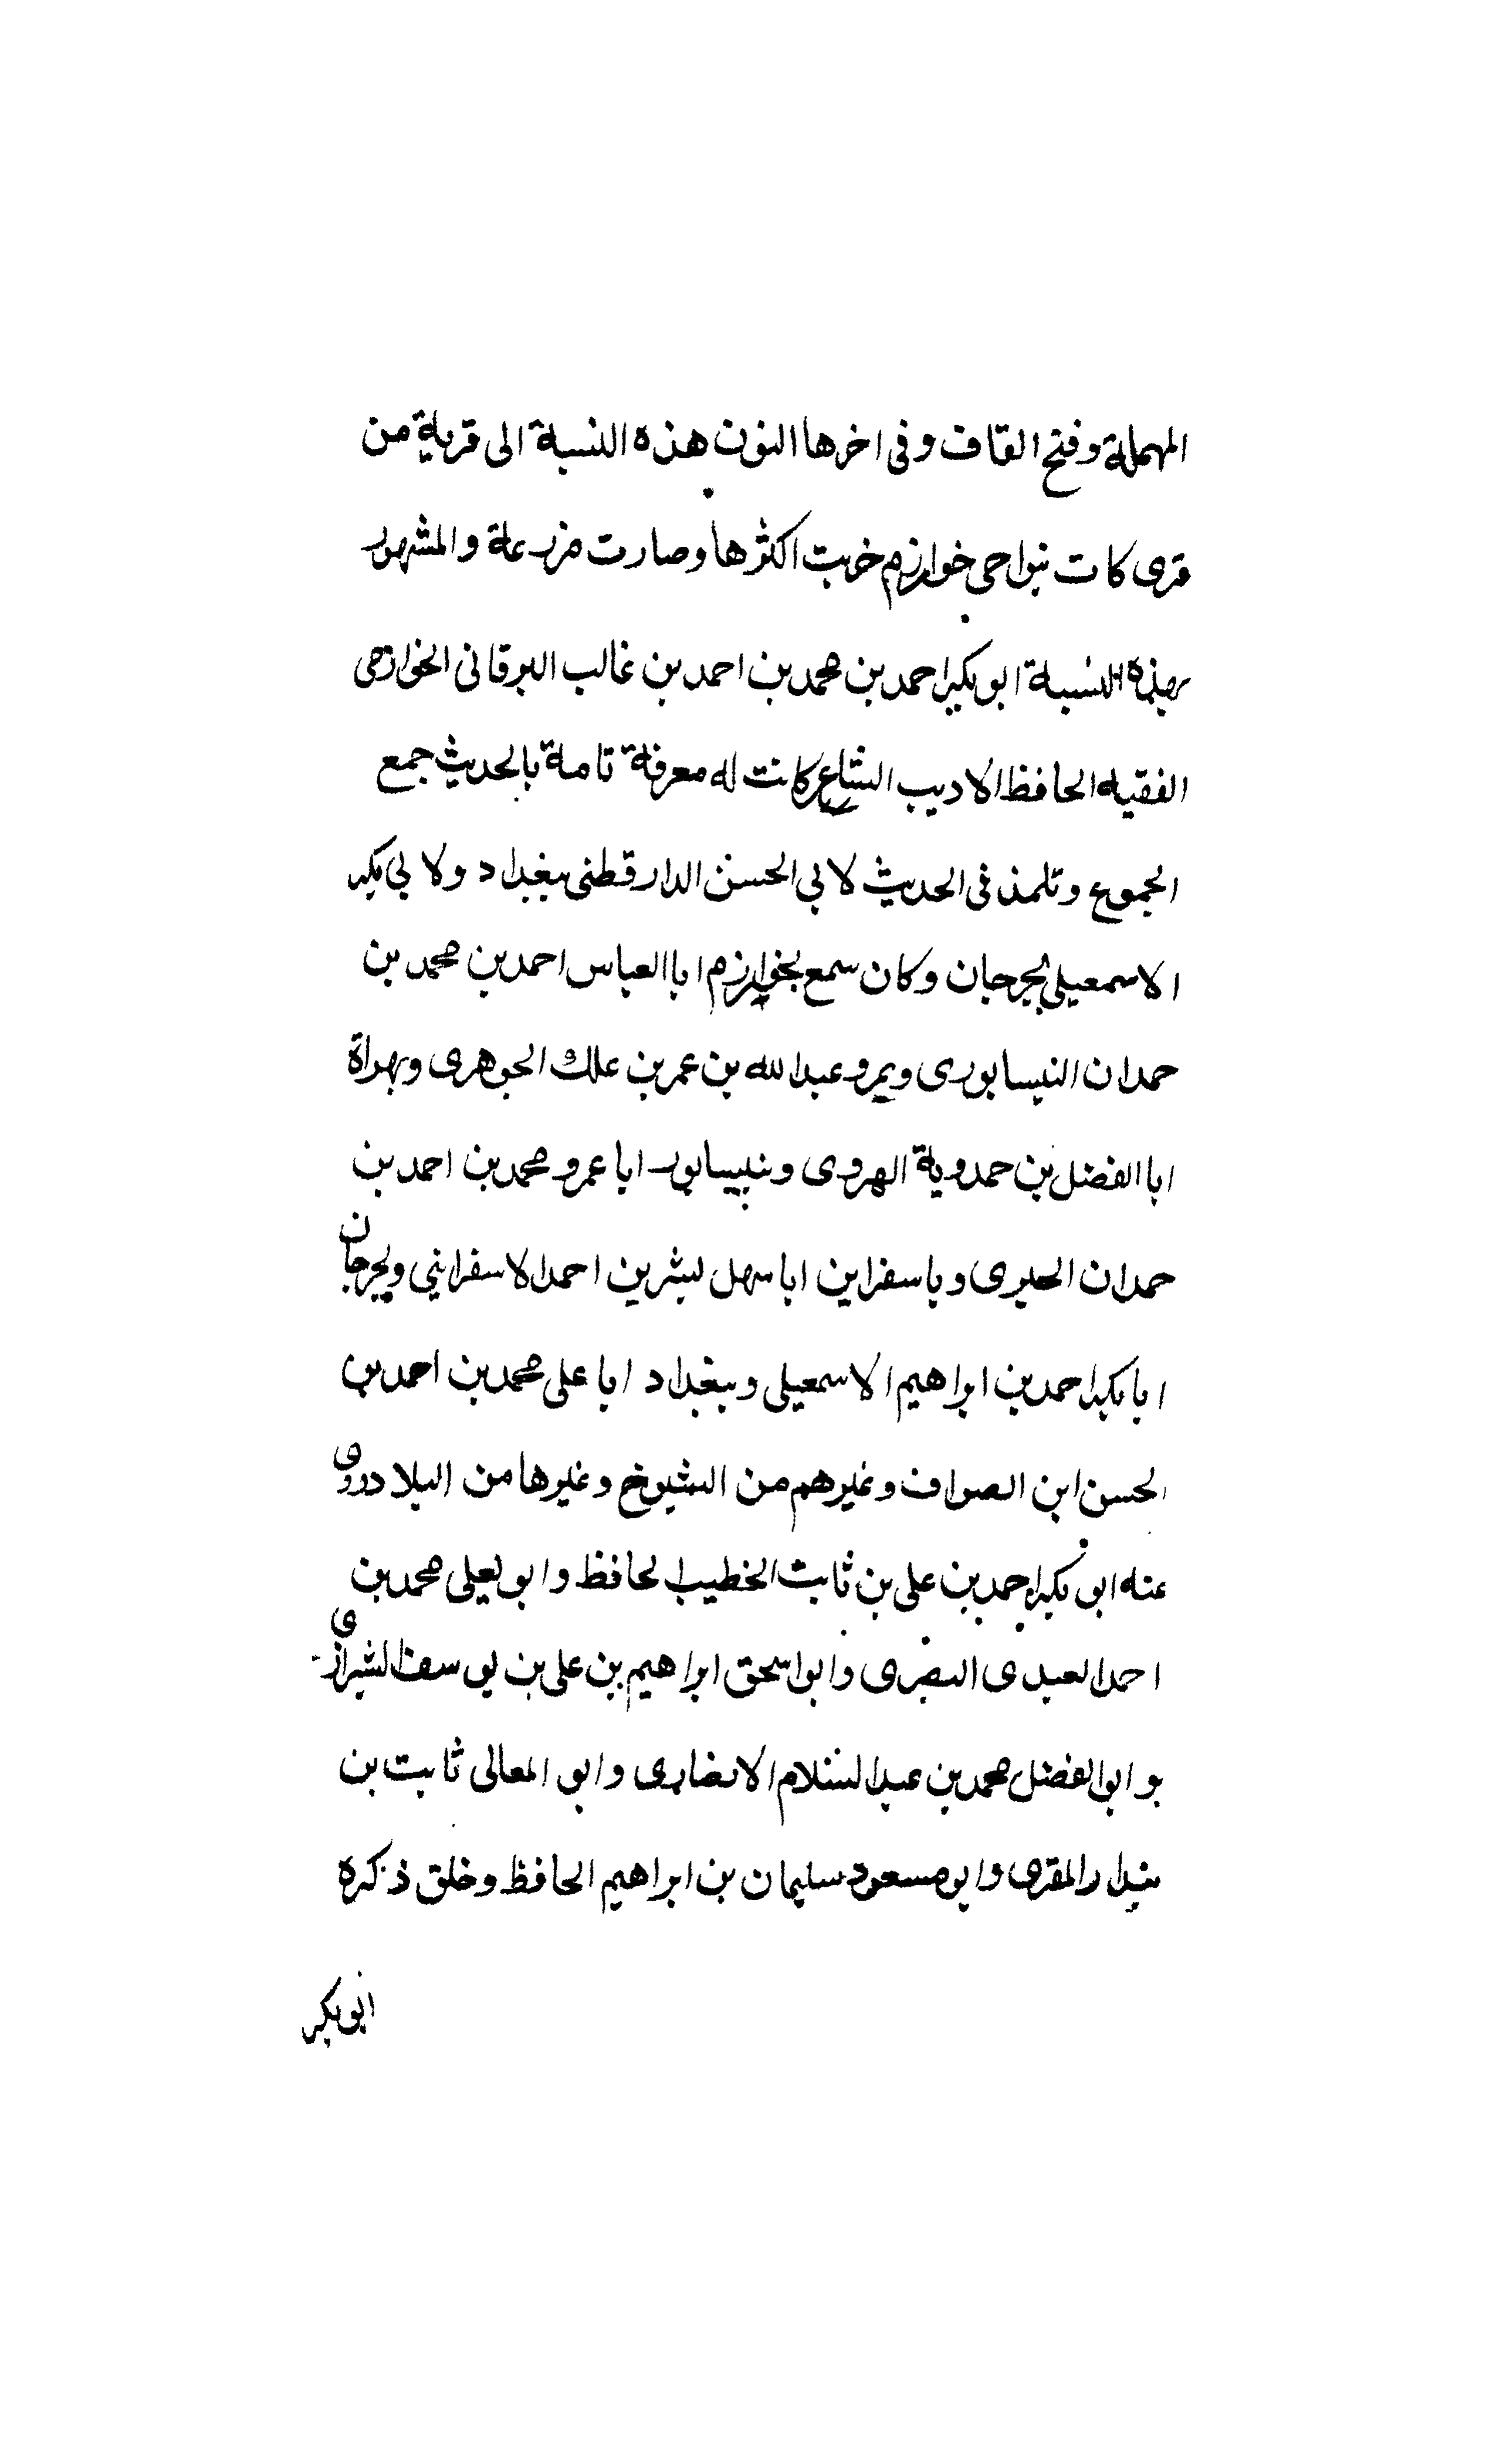 المهملة وفتح القاف وفى اخرها النون هذه النسبة الى قرية من
قرى كات بنواحى خوارزم خربت اكثرها وصارت مزرعة والمشهور
بهذه النسبة ابو بكر احمد بن محمد بن احمد بن غالب البرقانى الخوارزمى
الفقيه الحافظ الاديب الشاعر كانت له معرفة تامة بالحديث جمع
الجموع وتلمذ فى الحديث لابي الحسن الدارقطنى ببغداد ولابي بكر
الاسمعيلى بجرجان وكان سمع بخوارزم ابا العباس احمد بن محمد بن
حمدان النيسابورى وبمرو عبد الله بن عمر بن علك الجوهرى وبهراة
ابا الفضل بن حمدوية الهروى وبنيسابور ابا عمرو محمد بن احمد بن
حمدان الحيرى وباسفراين ابا سهل بشر بن احمد الاسفرايني وبجرجان
ابا بكر احمد بن ابراهيم الاسمعيلى وببغداد ابا على محمد بن احمد بن
الحسن ابن الصواف وغيرهم من الشيوخ وغيرها من البلاد روى
عنه ابو بكر احمد بن على بن ثابت الخطيب الحافظ وابو يعلى محمد بن
احمد العبدى البصرى وابو اسحق ابراهيم بن على بن يوسف الشيرازى
وابو الفضل محمد بن عبد السلام الانصارى وابو المعالى ثابت بن
بندار المقرى وابو مسعود سليمان بن ابراهيم الحافظ وخلق ذكره
ابو بكر